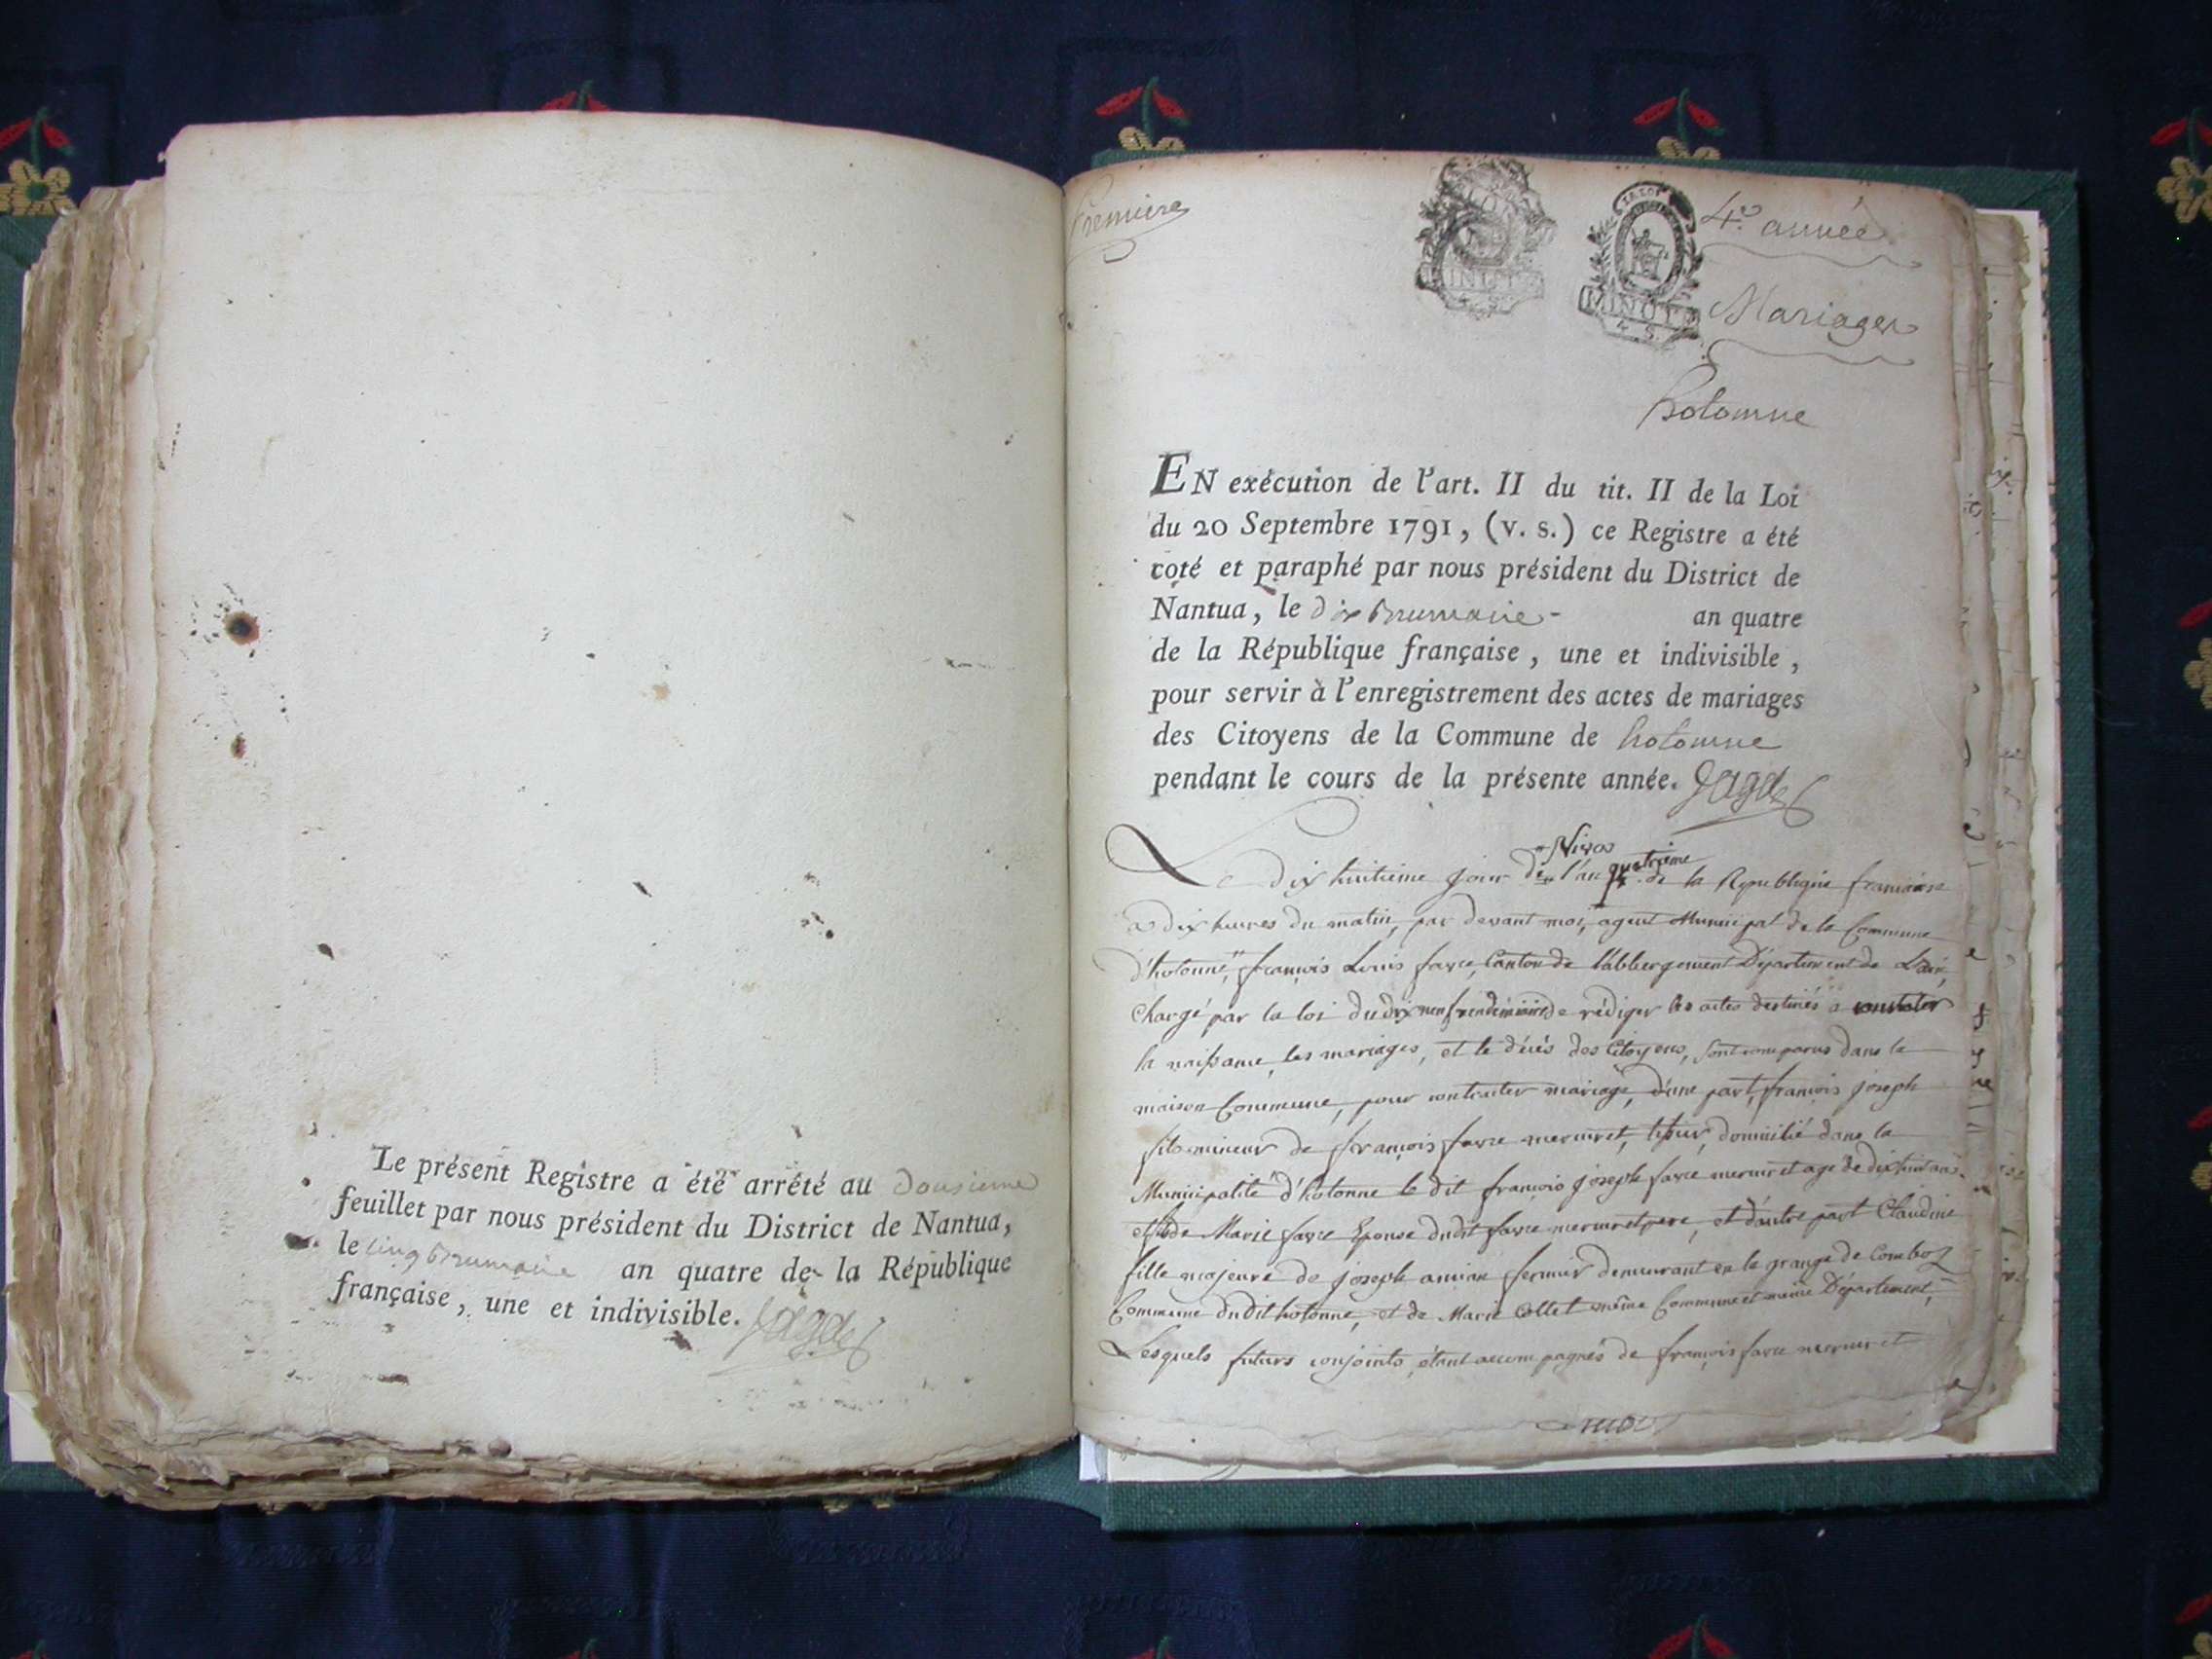 Le présent Registre a été arrêté au dousieme
feuillet par nous président du District de Nantua,
le cinq Brumaire an quatre de la République
française, une et indivisible.
Premiere
4e. année
MINUTE
4 S.
Mariages
hotonne
EN exécution de l'art. II du tit. II de la Loi
du 20 Septembre 1791, (v. s.) ce Registre a été
coté et paraphé par nous président du District de
Nantua, le dix Brumaire - an quatre
de la République française, une et indivisible,
pour servir à l'enregistrement des actes de mariages
des Citoyens de la Commune de hotonne
pendant le cours de la présente année.
Nivos
quatrieme
Le dix huitieme jour de l'an de la Republique francaise
a dix heures du matin, par devant moi, agent Municipal de la Commune
d'hotonne, francois Louis favre, Canton de l'abbergement Département de L'ain,
Chargé par la loi du dix neuf vendémiaire de rédiger les actes destinés a constater
la naissance, les mariages, et le décés des Citoyens, sont comparus dans la
maison Commune, pour contracter mariage, d'une part, francois joseph
fils mineur de francois favre mermet, domicilié dans la
Municipalité d'hotonne le dit francois joseph favre mermet agé de dix huit ans.
et de Marie favre Epouse dudit favre mermet pere, et d'autre part Claudine
fille majeure de joseph fermier demeurant en la grange de Comboz
Commune dudit hotonne, et de Marie Collet même Commune et même Département,
Lesquels futurs conjoints étant accompagnés de francois favre mermet